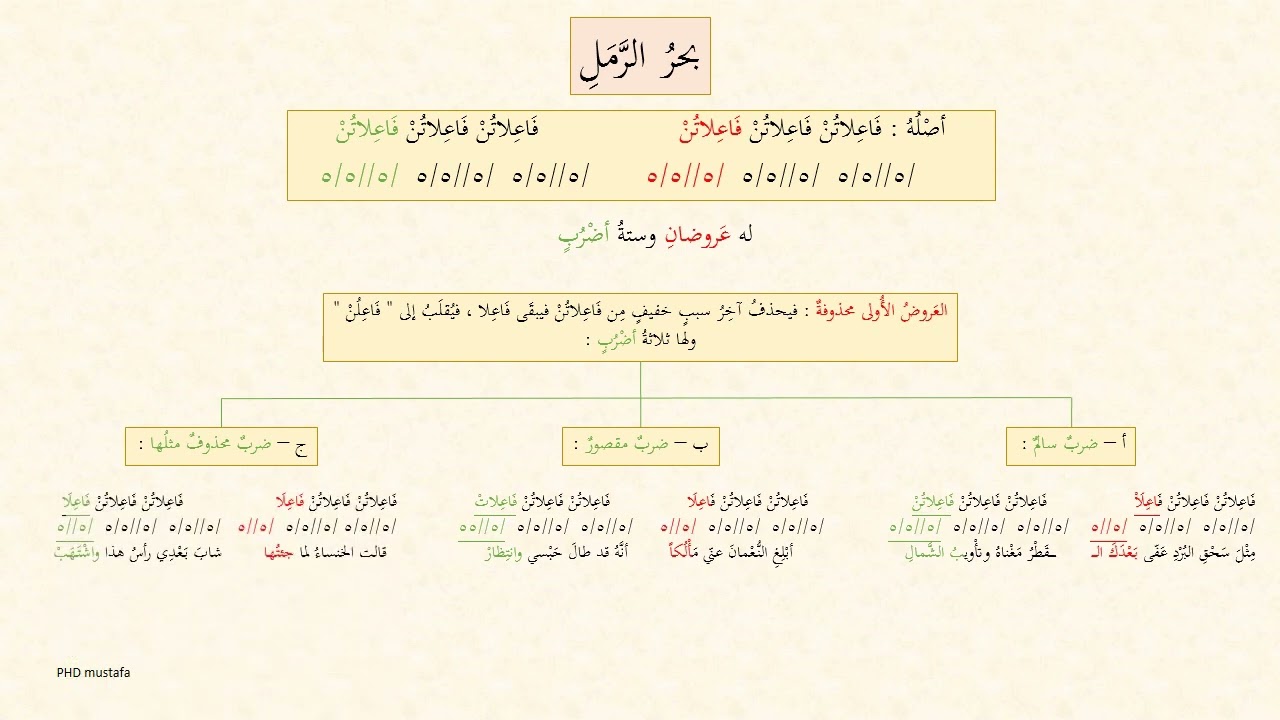 بحرُ الرَّمَلِ
أصْلُهُ : فَاعِلاتُنْ فَاعِلاتُنْ فَاعِلاتُنْ فَاعِلاتُنْ فَاعِلاتُنْ فَاعِلاتُنْ
/٥//٥/٥ /٥//٥/٥ /٥//٥/٥ /٥//٥/٥ /٥//٥/٥ /٥//٥/٥
له عَروضانِ وستةُ أضْرُبٍ
العَروضُ الأُولى محذوفةٌ : فيحذفُ آخِرُ سببٍ خفيفٍ مِن فَاعِلاتُنْ فيبقَى فَاعِلا ، فيُقلَبُ إلى " فَاعِلُنْ "
ولها ثلاثةُ أضْرُبٍ :
أ – ضربٌ سالمٌ :
فَاعِلاتُنْ فَاعِلاتُنْ فَاعِلَاْ فَاعِلاتُنْ فَاعِلاتُنْ فَاعِلاتُنْ
/٥//٥/٥ /٥//٥/٥ /٥//٥ /٥//٥/٥ /٥//٥/٥ /٥//٥/٥
مِثْلَ سَحْقِ البُرْدِ عَفَّى بَعْدَكَ الـ ـقَطْرُ مَغْناهُ وتأويبُ الشَّمالِ
ب – ضربٌ مقصورٌ :
فَاعِلاتُنْ فَاعِلاتُنْ فَاعِلَا فَاعِلاتُنْ فَاعِلاتُنْ فَاعِلاتْ
/٥//٥/٥ /٥//٥/٥ /٥//٥ /٥//٥/٥ /٥//٥/٥ /٥//٥٥
أبْلِغِ النُّعْمانَ عنّي مَأْلُكاً أنَّهُ قد طالَ حَبْسي وانتِظارْ
ج – ضربٌ محذوفٌ مثلُها :
فَاعِلاتُنْ فَاعِلاتُنْ فَاعِلَا فَاعِلاتُنْ فَاعِلاتُنْ فَاعِلَا
/٥//٥/٥ /٥//٥/٥ /٥//٥ /٥//٥/٥ /٥//٥/٥ /٥//٥
قالت الخنساءُ لما جئتُها شابَ بَعْدِي رأسُ هذا واشْتَهَبْ
PHD mustafa